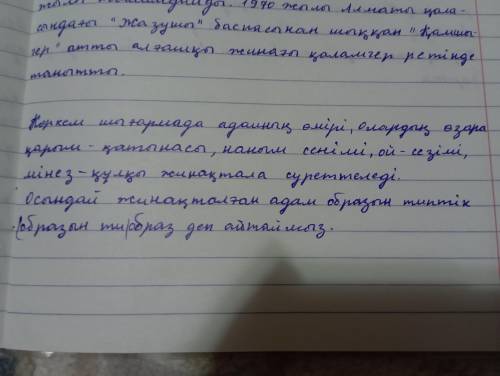 жылы 1970 жылы Алматы қала-
сындағы "Жазушы" баспасынан шыққан "Қамшы-
гер" атты алғашқы жинағы қаламгер ретінде
танытты.
Көркем шығармада адамның өмірі, олардың өзара
қарым-қатынасы, наным сенімі, ой-сезімі,
мінез-құлқы жинақтала суреттеледі.
Осындай жинақталған адам образын типтік
(образын ти) образ деп айтамыз.